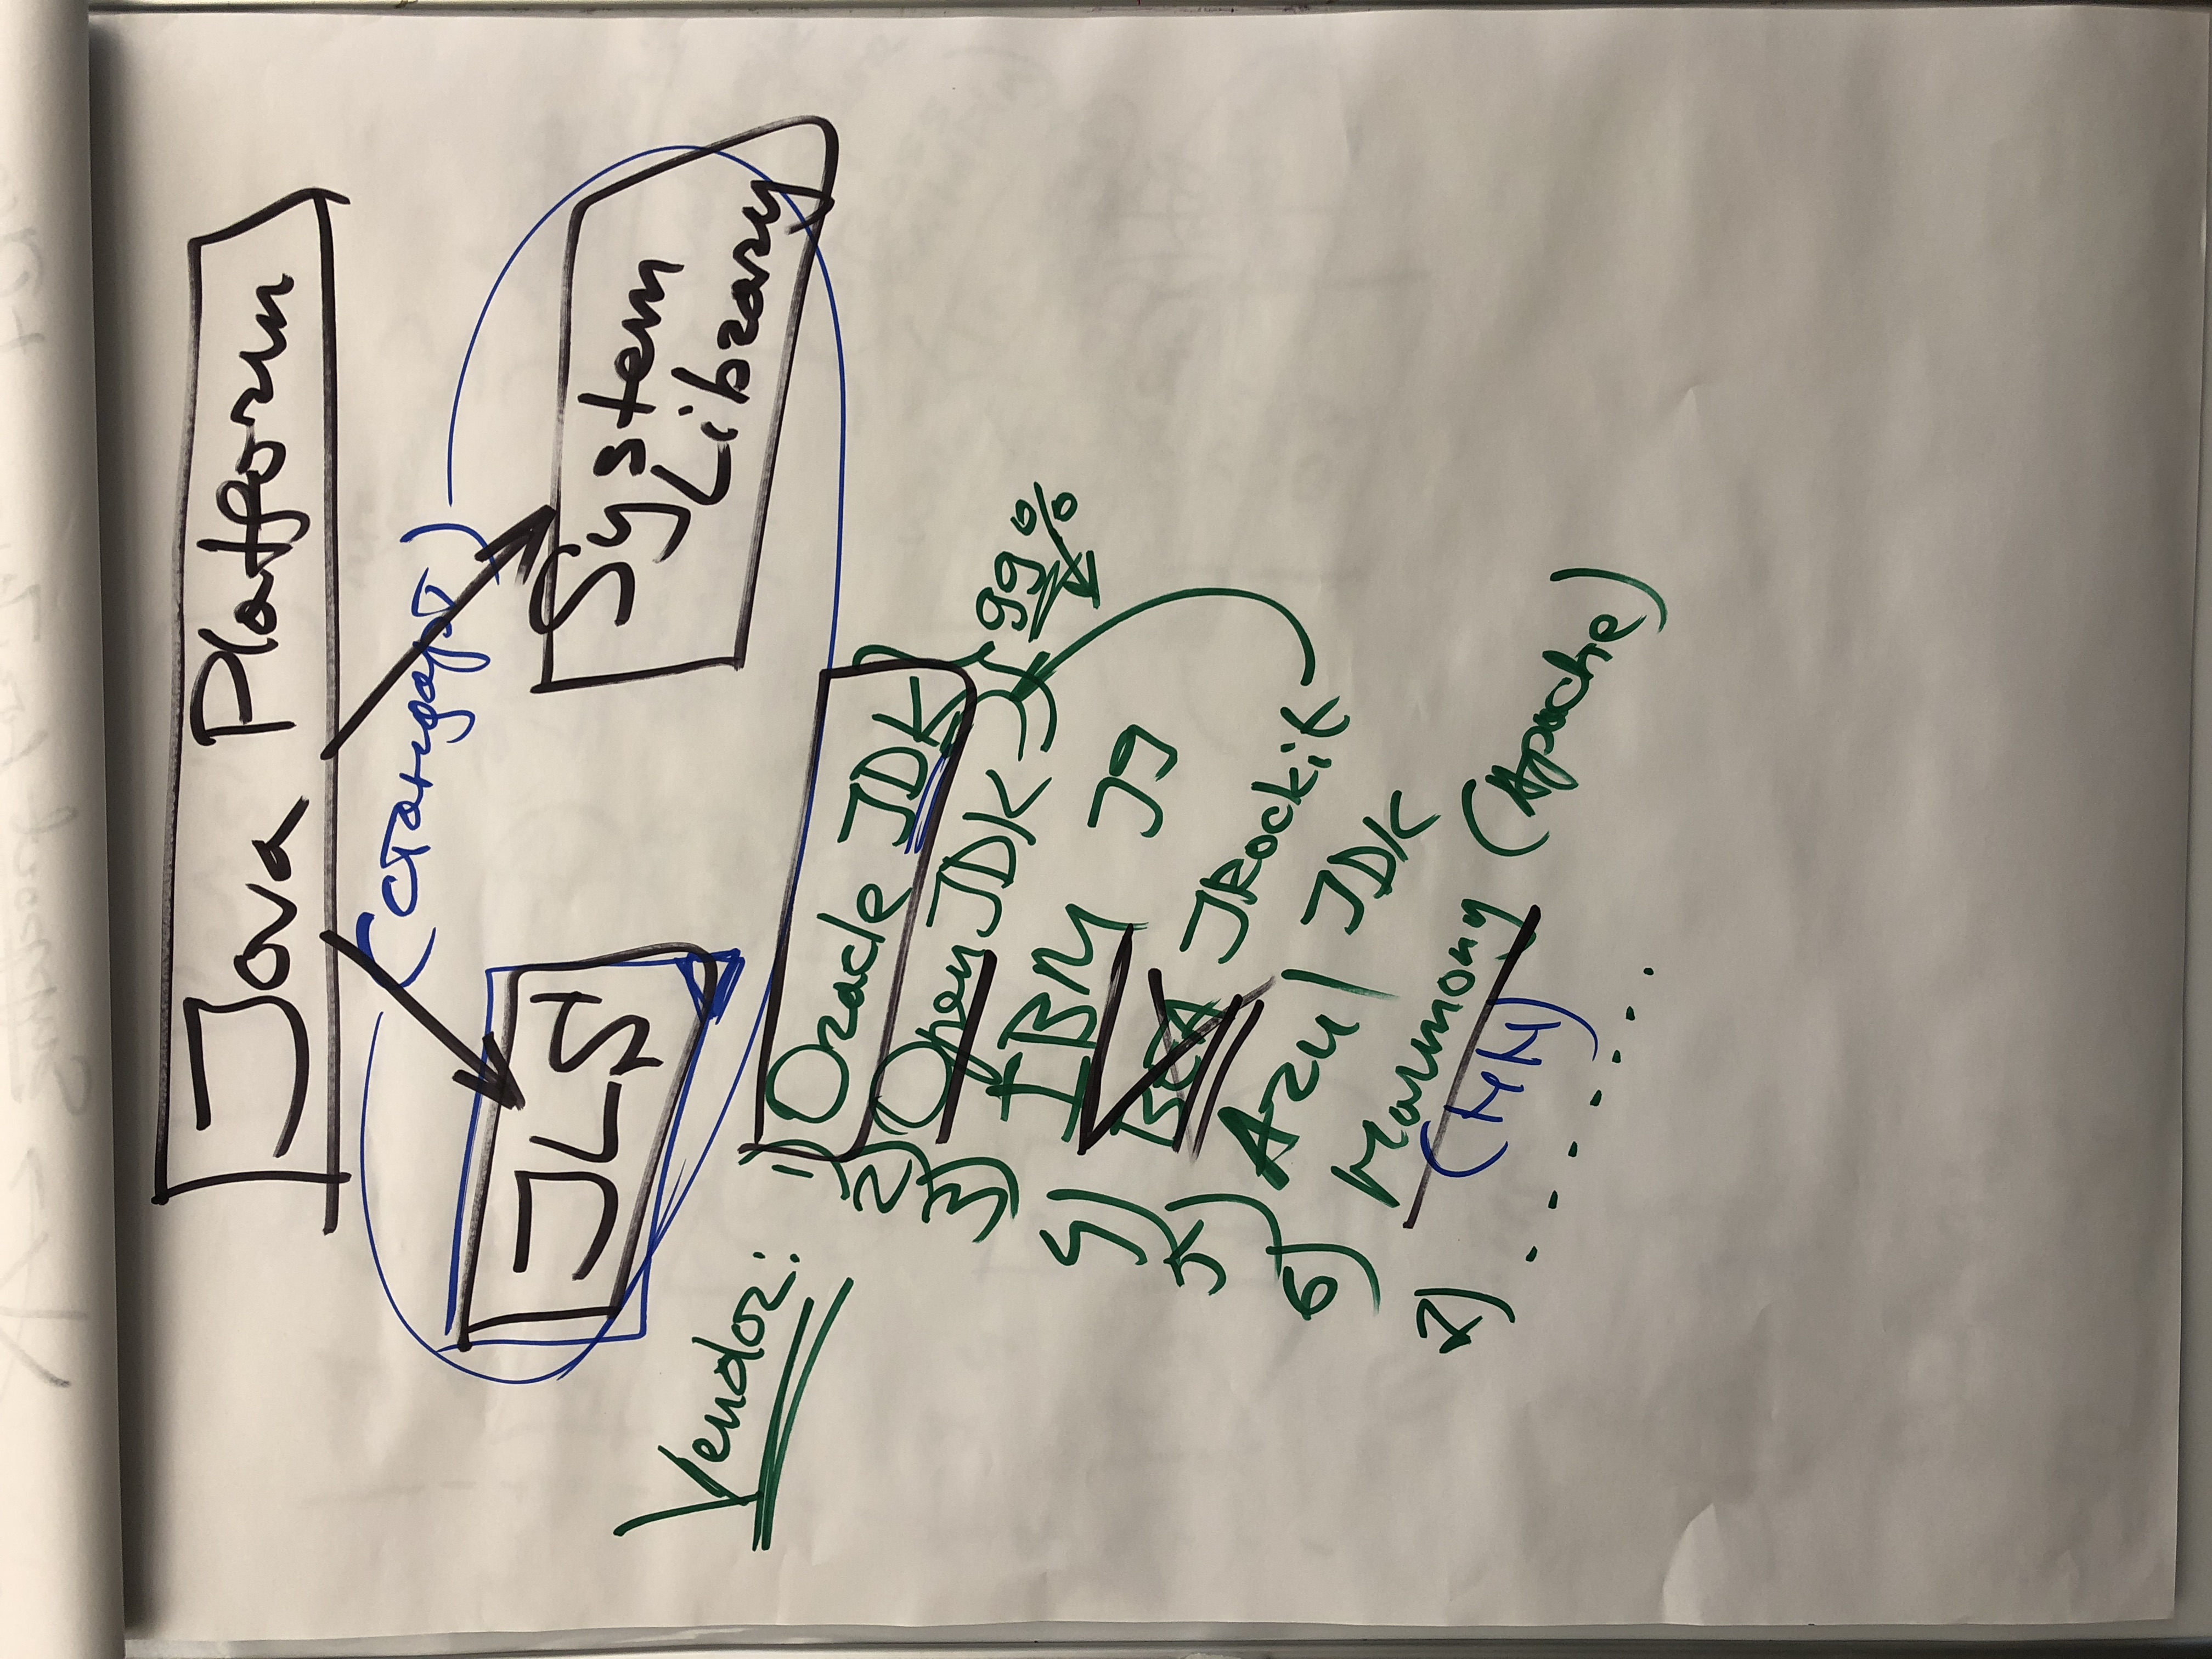 Java Platform
(стандарт)
JLS
System
Library
Vendor:
1) Oracle JDK
2) Open JDK
99%
3) IBM J9
4) BEA JRockit
5) Azul JDK
6) Harmony (Apache)
(НН)
7) . . . . . . .